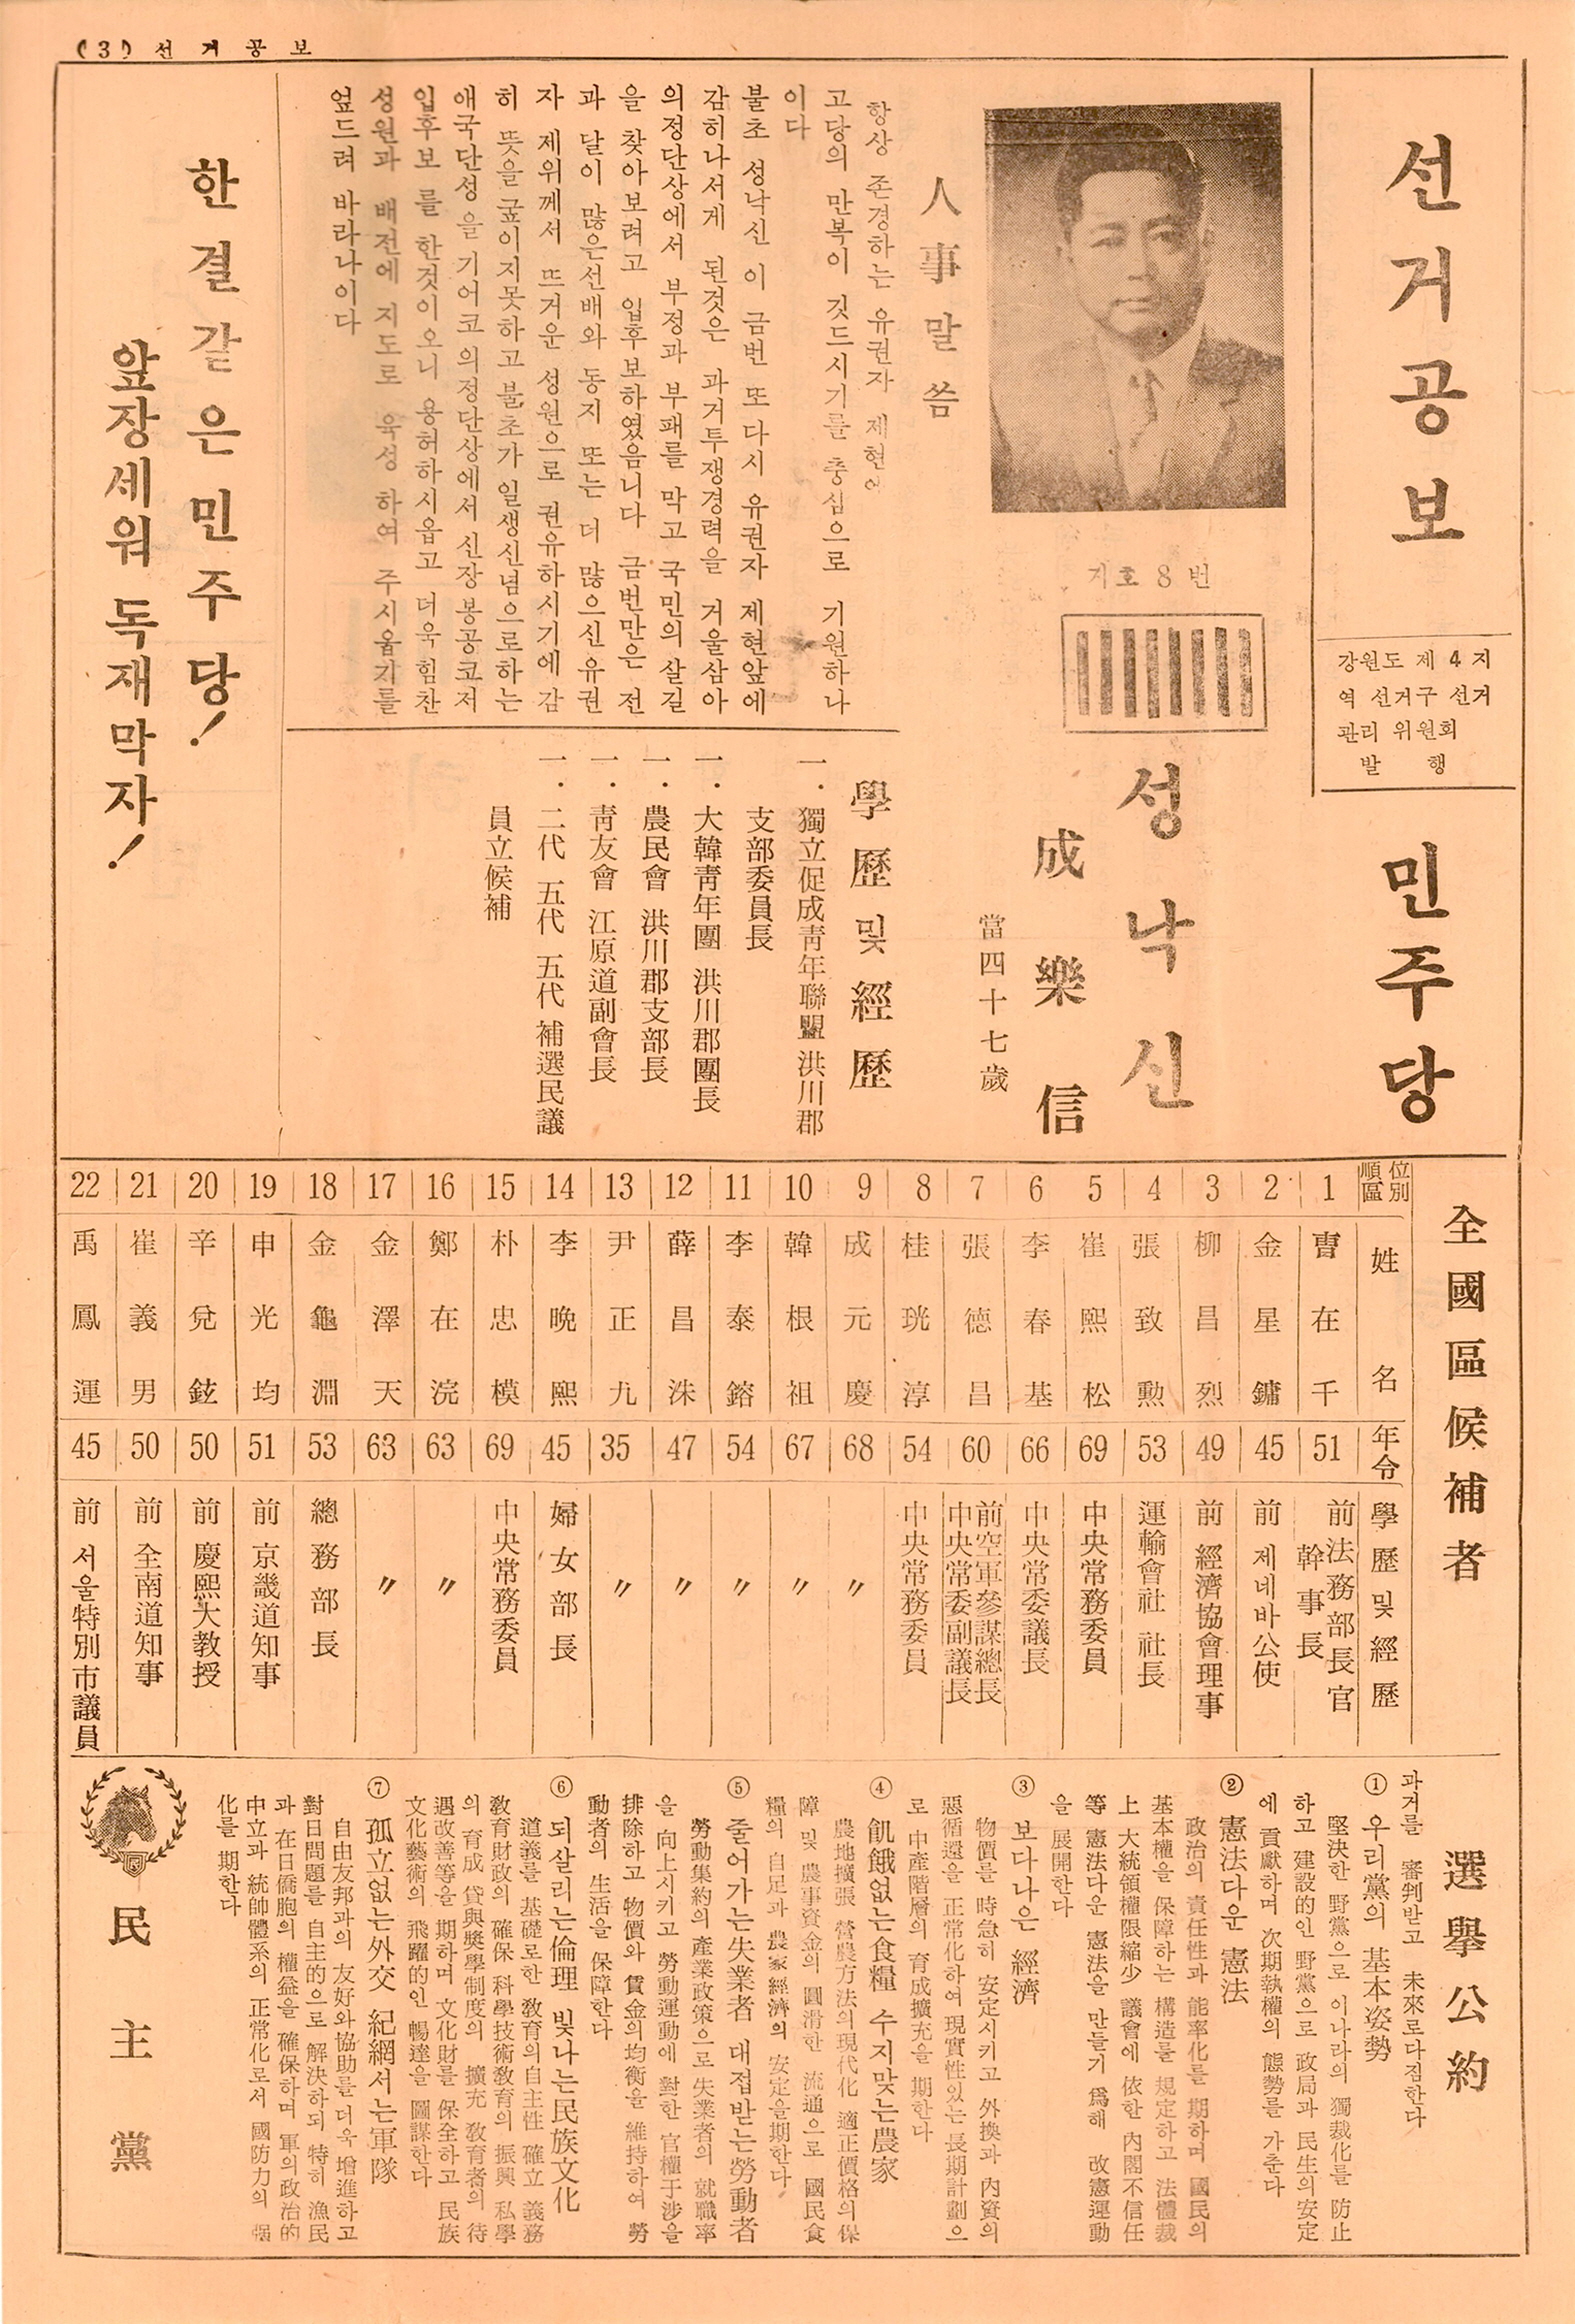 (3) 선거공보
선거공보
강원도 제4지
역 선거구 선거
관리 위원회
발 행
민주당
기호 8 번
성낙신
成樂信
當四十七歲
人事말씀
항상 존경하는 유권자 제현에
고당의 만복이 깃드시기를 충심으로 기원하나
이다
불초 성낙신 이 금번 또 다시 유권자 제현앞에
감히나서게 된것은 과거투쟁경력을 거울삼아
의정단상에서 부정과 부패를 막고 국민의 살길
을 찾아보려고 입후보하였음니다 금번만은 전
과 달이 많은선배와 동지 또는 더 많으신 유권
자 제위께서 뜨거운 성원으로 권유하시기에 감
히 뜻을굽이지못하고 불초가 일생신념으로하는
애국단성 을 기어코 의정단상에서 신장봉공코저
입후보 를 한것이오니 용허하시옵고 더욱 힘찬
성원과 배전에 지도로 육성 하여 주시옵기를
엎드려 바라나이다
學歷 및 經歷
一. 獨立促成靑年聯盟 洪川郡
支部委員長
一. 大韓靑年團 洪川郡團長
一. 農民會 洪川郡支部長
一. 靑友會 江原道副會長
一. 二代 五代 五代 補選民議
員立候補
한결같은 민주당!
앞장세워 독재막자!
全國區候補者
順位 區別 姓名 年令 學歷 및 經歷
1 曺在千 51 前法務部長官 幹事長
2 金星鏞 45 前 제네바公使
3 柳昌烈 49 前 經濟協會理事
4 張致勳 53 運輸會社 社長
5 崔熙松 69 中央常務委員
6 李春基 66 中央常委議長
7 張德昌 60 前空軍參謀總長 中央常委副議長
8 桂珖淳 54 中央常務委員
9 成元慶 68 〃
10 韓根祖 67 〃
11 李泰鎔 54 〃
12 薛昌洙 47 〃
13 尹正九 35 〃
14 李晩熙 45 婦女部長
15 朴忠模 69 中央常務委員
16 鄭在浣 63 〃
17 金澤天 63 〃
18 金龜淵 53 總務部長
19 申光均 51 前 京畿道知事
20 辛兌鉉 50 前 慶熙大教授
21 崔義男 50 前 全南道知事
22 禹鳳運 45 前 서울特別市議員
選擧公約
과거를 審判받고 未來로다짐한다
① 우리黨의 基本姿勢
堅決한 野黨으로 이나라의 獨裁化를 防止
하고 建設的인 野黨으로 政局과 民生의安定
에 貢獻하며 次期執權의 態勢를 가춘다
② 憲法다운 憲法
政治의 責任性과 能率化를 期하며 國民의
基本權을 保障하는 構造를 規定하고 法體裁
上 大統領權限縮少 議會에 依한 內閣不信任
等 憲法다운 憲法을 만들기 爲해 改憲運動
을 展開한다
③ 보다나은 經濟
物價를 時急히 安定시키고 外換과 內資의
惡循還을 正常化하여 現實性있는 長期計劃으
로 中産階層의 育成擴充을 期한다
④ 飢餓없는食糧 수지맞는農家
農地擴張 營農方法의現代化 適正價格의保
障 및 農事資金의 圓滑한 流通으로 國民食
糧의 自足과 農家經濟의 安定을期한다
⑤ 줄어가는失業者 대접받는勞動者
勞動集約의 産業政策으로 失業者의 就職率
을 向上시키고 勞動運動에 對한 官權干涉을
排除하고 物價와 賃金의均衡을 維持하여 勞
動者의 生活을 保障한다
⑥ 되살리는倫理 빛나는民族文化
道義를 基礎로한 敎育의自主性 確立 義務
敎育財政의 確保 科學技術敎育의 振興 私學
의 育成 貸與奬學制度의 擴充 敎育者의 待
遇改善等을 期하며 文化財를 保全하고 民族
文化藝術의 飛躍的인 暢達을 圖謀한다
⑦ 孤立없는外交 紀網서는軍隊
自由友邦과의 友好와協助를더욱 增進하고
對日問題를 自主的으로 解決하되 特히 漁民
과 在日僑胞의 權益을 確保하며 軍의政治的
中立과 統帥體系의 正常化로서 國防力의 强
化를 期한다
民主黨